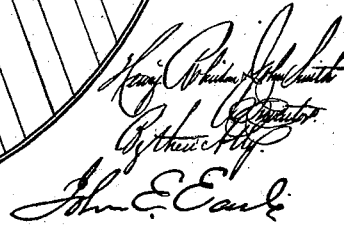 Henry Robinson John Smith
Inventors
By their Atty.
John E. Earle